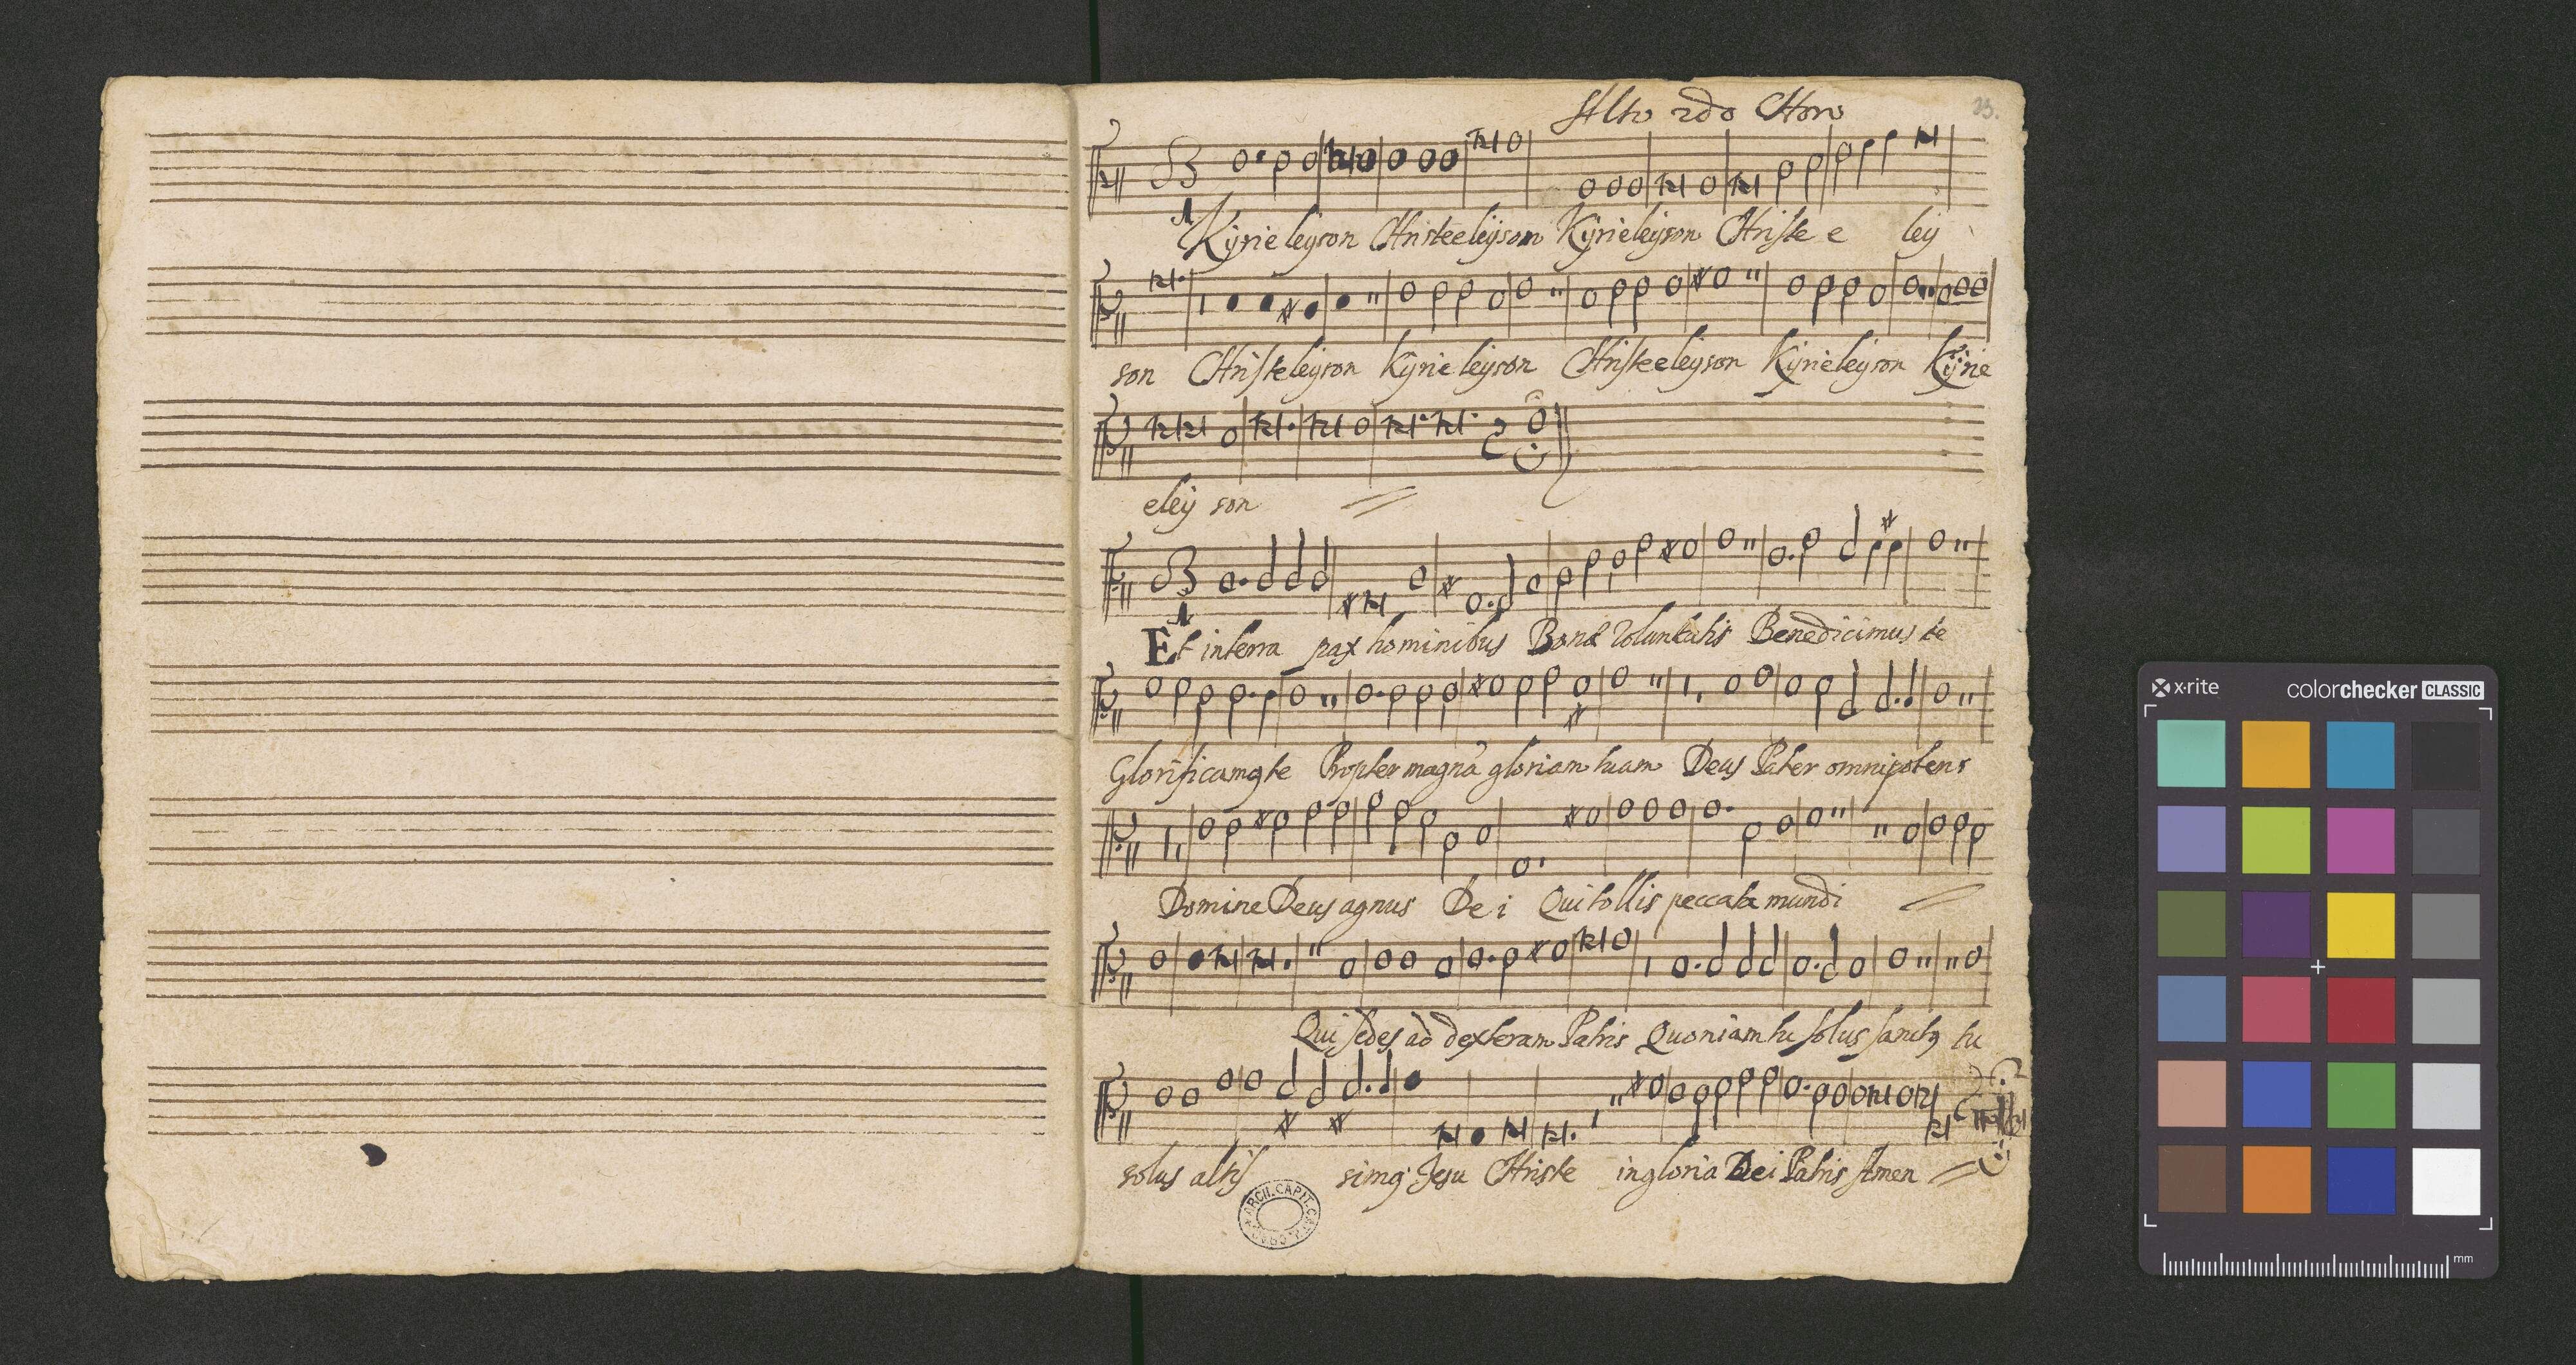 Alto 2do Choro
23.
Kyrie leyson Christe eleyson Kyrieleyson Christe e ley
son Christeleyson Kyrie leyson Christe eleyson Kyrieleyson Kyrie
eley son
Et in terra pax hominibus Bonæ Voluntatis Benedicimus te
Glorificamꝯ te Propter magnã gloriam tuam Deus Pater omnipotens
Domine Deus agnus De i Qui tollis peccata mundi
Qui sedes ad dexteram Patris Quoniam tu solus sanctꝯ tu
solus altis simꝯ Jesu Christe in gloria Dei Patris Amen
ARCH. CAPIT.
x-rite
colorchecker CLASSIC
mm